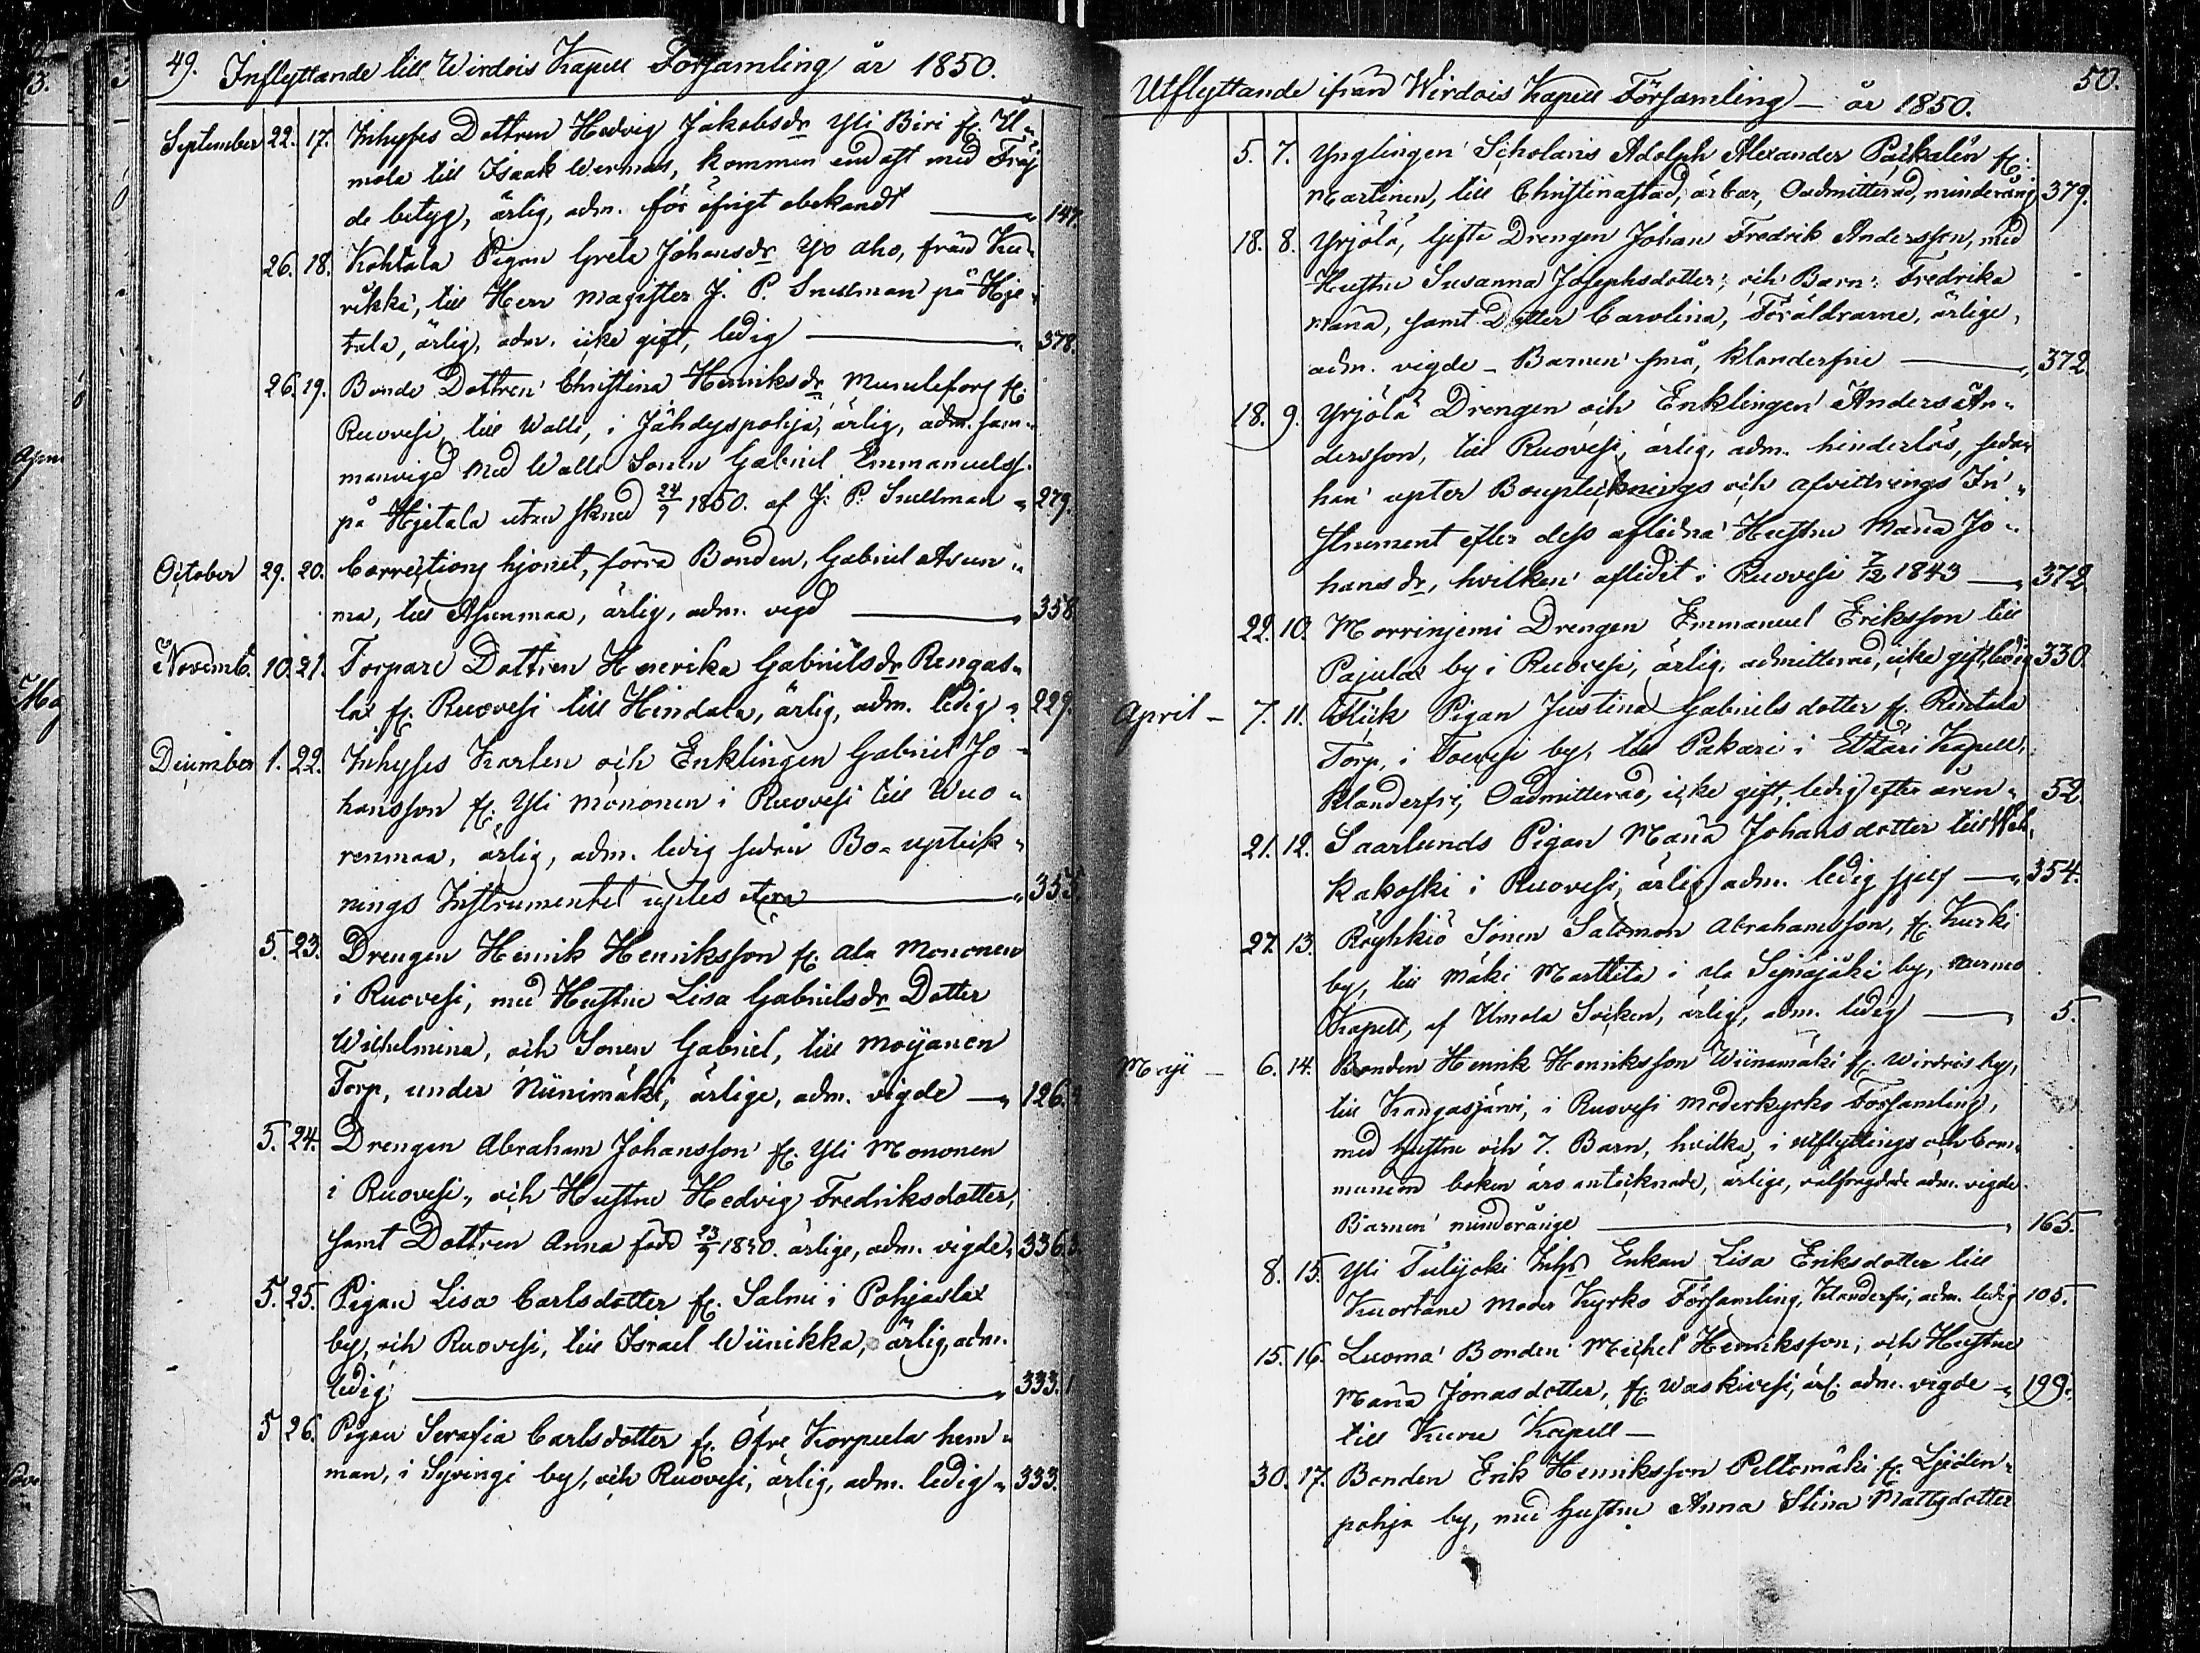 49. Inflyttande till Wirdois Kapell Församling år 1850.
September 22. 17. Inhyses Dottren Hedvig Jakobsdr Yli Biri fr. U-
mola till Isaak Wermas, kommen endast med Frej
de betyg, ärlig, adm. för öfrigt obekandt 147.
26. 18. Kohtala Pigan Greta Johansdr Yjo aho, från Ku-
rikka, till Herr Magister J. P. Snellman på Hje-
tala, ärlig, adm. icke gift, ledig 378.
26. 19. Bonde Dottren Christina Henriksdr fr.
Ruovesi, till Walli, i Jähdyspohja, ärlig, adm. sam-
manvigd med Walli Sonen Gabriel Emmanuelss.
på Hjetala utan skrud 24/9 1850. af J. P. Snellman 279.
October 29. 20. Corrections hjonet, förra Bonden, Gabriel Asun-
ma, till Asunmaa, ärlig, adm. vigd 358
Novemb. 10. 21. Torpare Dottren Henrika Gabrielsdr Rengas-
lax fr. Ruovesi till Hindala, ärlig, adm. ledig 229.
December 1. 22. Inhyses Karlen och Enklingen Gabriel Jo-
hansson fr. Yli Mononen i Ruovesi till Wuo-
renmaa, ärlig, adm. ledig sedan Bo-upteck-
nings Instrumentet uptes 353.
5. 23. Drengen Henrik Henriksson fr. Ala Mononen
i Ruovesi, med Hustru Lisa Gabrielsdr Dotter
Wilhelmina, och Sonen Gabriel, till Moijanen
Torp, under Niinimäki, ärlige, adm. vigde 126.
5. 24. Drengen Abraham Johansson fr. Yli Mononen
i Ruovesi, och Hustru Hedvig Fredriksdotter,
samt Dottren Anna född 23/9 1850. ärlige, adm. vigde 336.
5. 25. Pigan Lisa Carlsdotter fr. Salmi i Pohjaslax
by, och Ruovesi, till Israel Wiinikka, ärlig, adm.
ledig 333.
5 26. Pigan Serafia Carlsdotter fr. Öfre Korpula hem-
man, i Syvingi by, och Ruovesi, ärlig, adm. ledig 333.
Utflyttande ifrån Wirdois Kapell Församling — år 1850. 50.
5. 7. Ynglingen Scholaris Adolph Alexander fr.
Martinen, till Christinastad, ärbar, Oadmitterad, minderårig 379.
18. 8. Yrjölä, Gifte Drengen Johan Fredrik Andersson, med
Hustru Susanna Josephsdotter, och Barn: Fredrika
Maria, samt Dotter Carolina, Föräldrarne, ärlige,
adm. vigde — Barnen små, klanderfrie 372.
18. 9. Yrjölä Drengen och Enklingen Anders An-
dersson, till Ruovesi, ärlig, adm. hinderlös, sedan
han upter Boupteknings och afvittrings In-
strument efter dess aflidna Hustru Maria Jo-
hansdr, hvilken aflidit i Ruovesi 7/12 1843 372
22. 10. Morrinjemi Drengen Emmanuel Eriksson till
Pajulax by i Ruovesi, ärlig, admitterad, icke gift, ledig 330.
April — 7. 11. Flick Pigan Justina Gabriels dotter fr. Rintala
Torp, i Toivesi by, till Pakari i Etsäri Kapell,
Klanderfri, Oadmitterad, icke gift, ledig efter åren 52
21. 12. Saarlunds Pigan Maria Johansdotter till
kakoski i Ruovesi, ärlig adm. ledig sjelf 354.
27. 13. Röyhkiö Sonen Salomon Abrahamsson, fr. Kurki
by, till Mäki Marttila i ala Seinäjoki by, Nurmo
Kapell, af Umola Socken, ärlig, adm. ledig 5.
Maji — 6. 14. Bonden Henrik Henriksson Wiinamäki fr. Wirdois by,
till Kangasjärvi, i Ruovesi moderkyrko Församling,
med Hustru och 7. Barn, hvilka, i utflyttnings och Com-
munion boken äro antecknade, ärlige, välfrägdade adm. vigde
Barnen minderårige 165.
8. 15. Yli Tulijoki Inhs Enkan Lisa Eriksdotter till
Kuortane Moder Kyrko Församling, Klanderfri, adm. ledig 105.
15. 16. Luoma Bonden Michel Henriksson, och Hustru
Maria Jonasdotter, fr. Waskivesi, ärl. adm. vigde 199.
till Kuru Kapell —
30. 17. Bonden Erik Henriksson Peltomäki fr. Liiden-
pohja by, med Hustru Anna Stina Mattsdotter